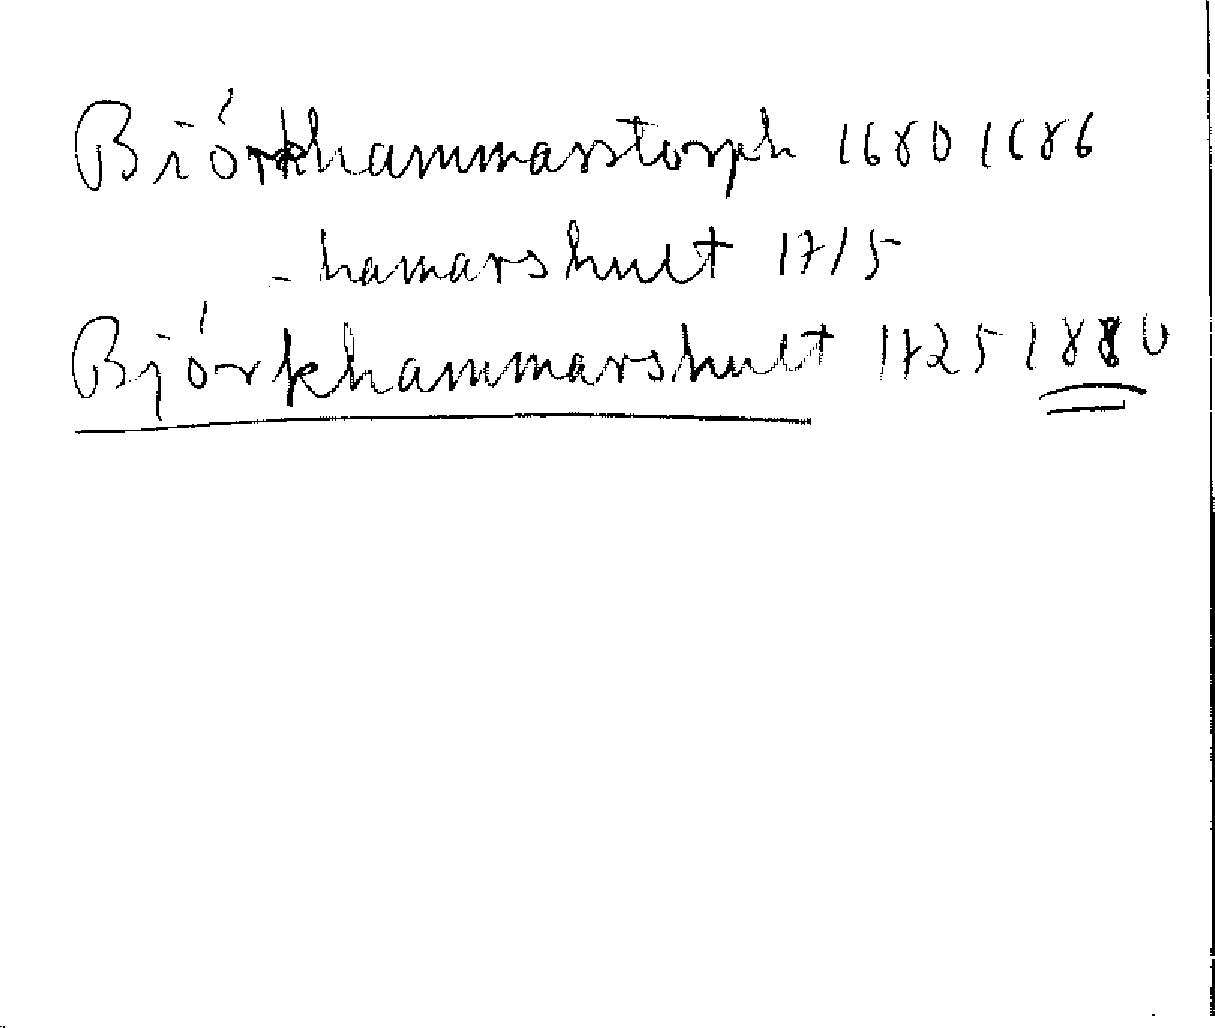 Biórkhammarstorph 1680 1686
- hamarshult 1715
Björkhammarshult 1725 1880